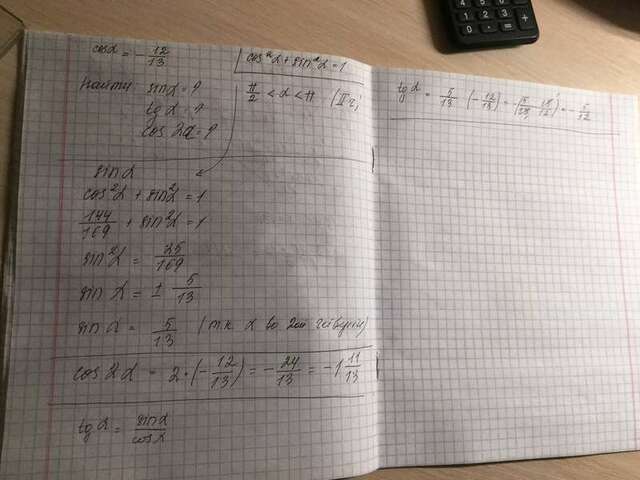 cosα = - 12/13
cos²α + sin²α = 1
Найти sinα = ?
π/2 < α < π (II ч;
tgα = ?
cos 2α = ?
sinα
cos²α + sin²α = 1
144/169 + sin²α = 1
sin²α = 25/169
sin α = ± 5/13
sin α = 5/13 (т.к α во 2ой четверти)
cos 2α = 2·(-12/13) = -24/13 = -1 11/13
tgα = sinα/cosα
tgα = 5/13 (-12/13) = -(5/13 · 13/12) = - 5/12